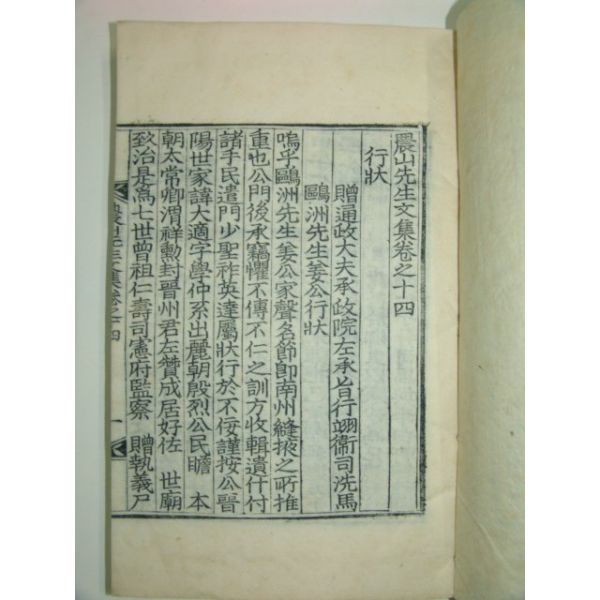 農山先生文集卷之十四
行狀
贈通政大夫承政院左承旨行翊衛司洗馬
鷗洲先生姜公行狀
嗚乎鷗洲先生姜公家聲名節卽南州縫掖之所推
重也公門後承竊懼不傳不仁之訓方收輯遺什付
諸手民遣門少聖祚英達屬狀行於不佞謹按公晉
陽世家諱大適字學仲系出麗朝殷烈公民瞻 本
朝太常卿渭祥勳封晉州君左贊成居好佐 世廟
致治是爲七世曾祖仁壽司憲府監察 贈執義尸
農山先生文集卷之十四 一